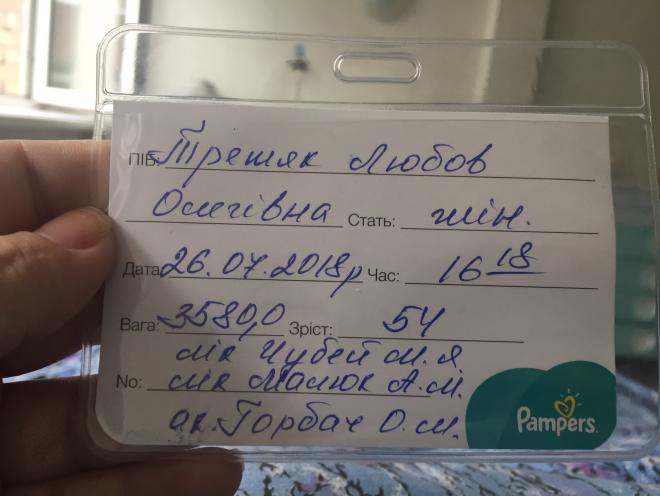 ПІБ: Трешяк Любов
Олегівна Стать: жін.
Дата 26.07.2018р Час: 16 18
Вага: 3580,0 Зріст: 54
лік Чубей М.Я.
No: лік Малюк А.М.
ак. Горбач О.М.
Pampers